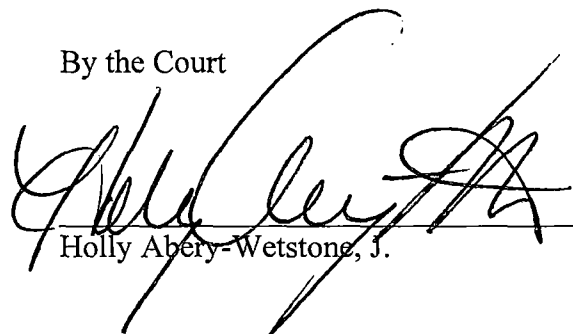 By the Court
Holly Abery-Wetstone, J.